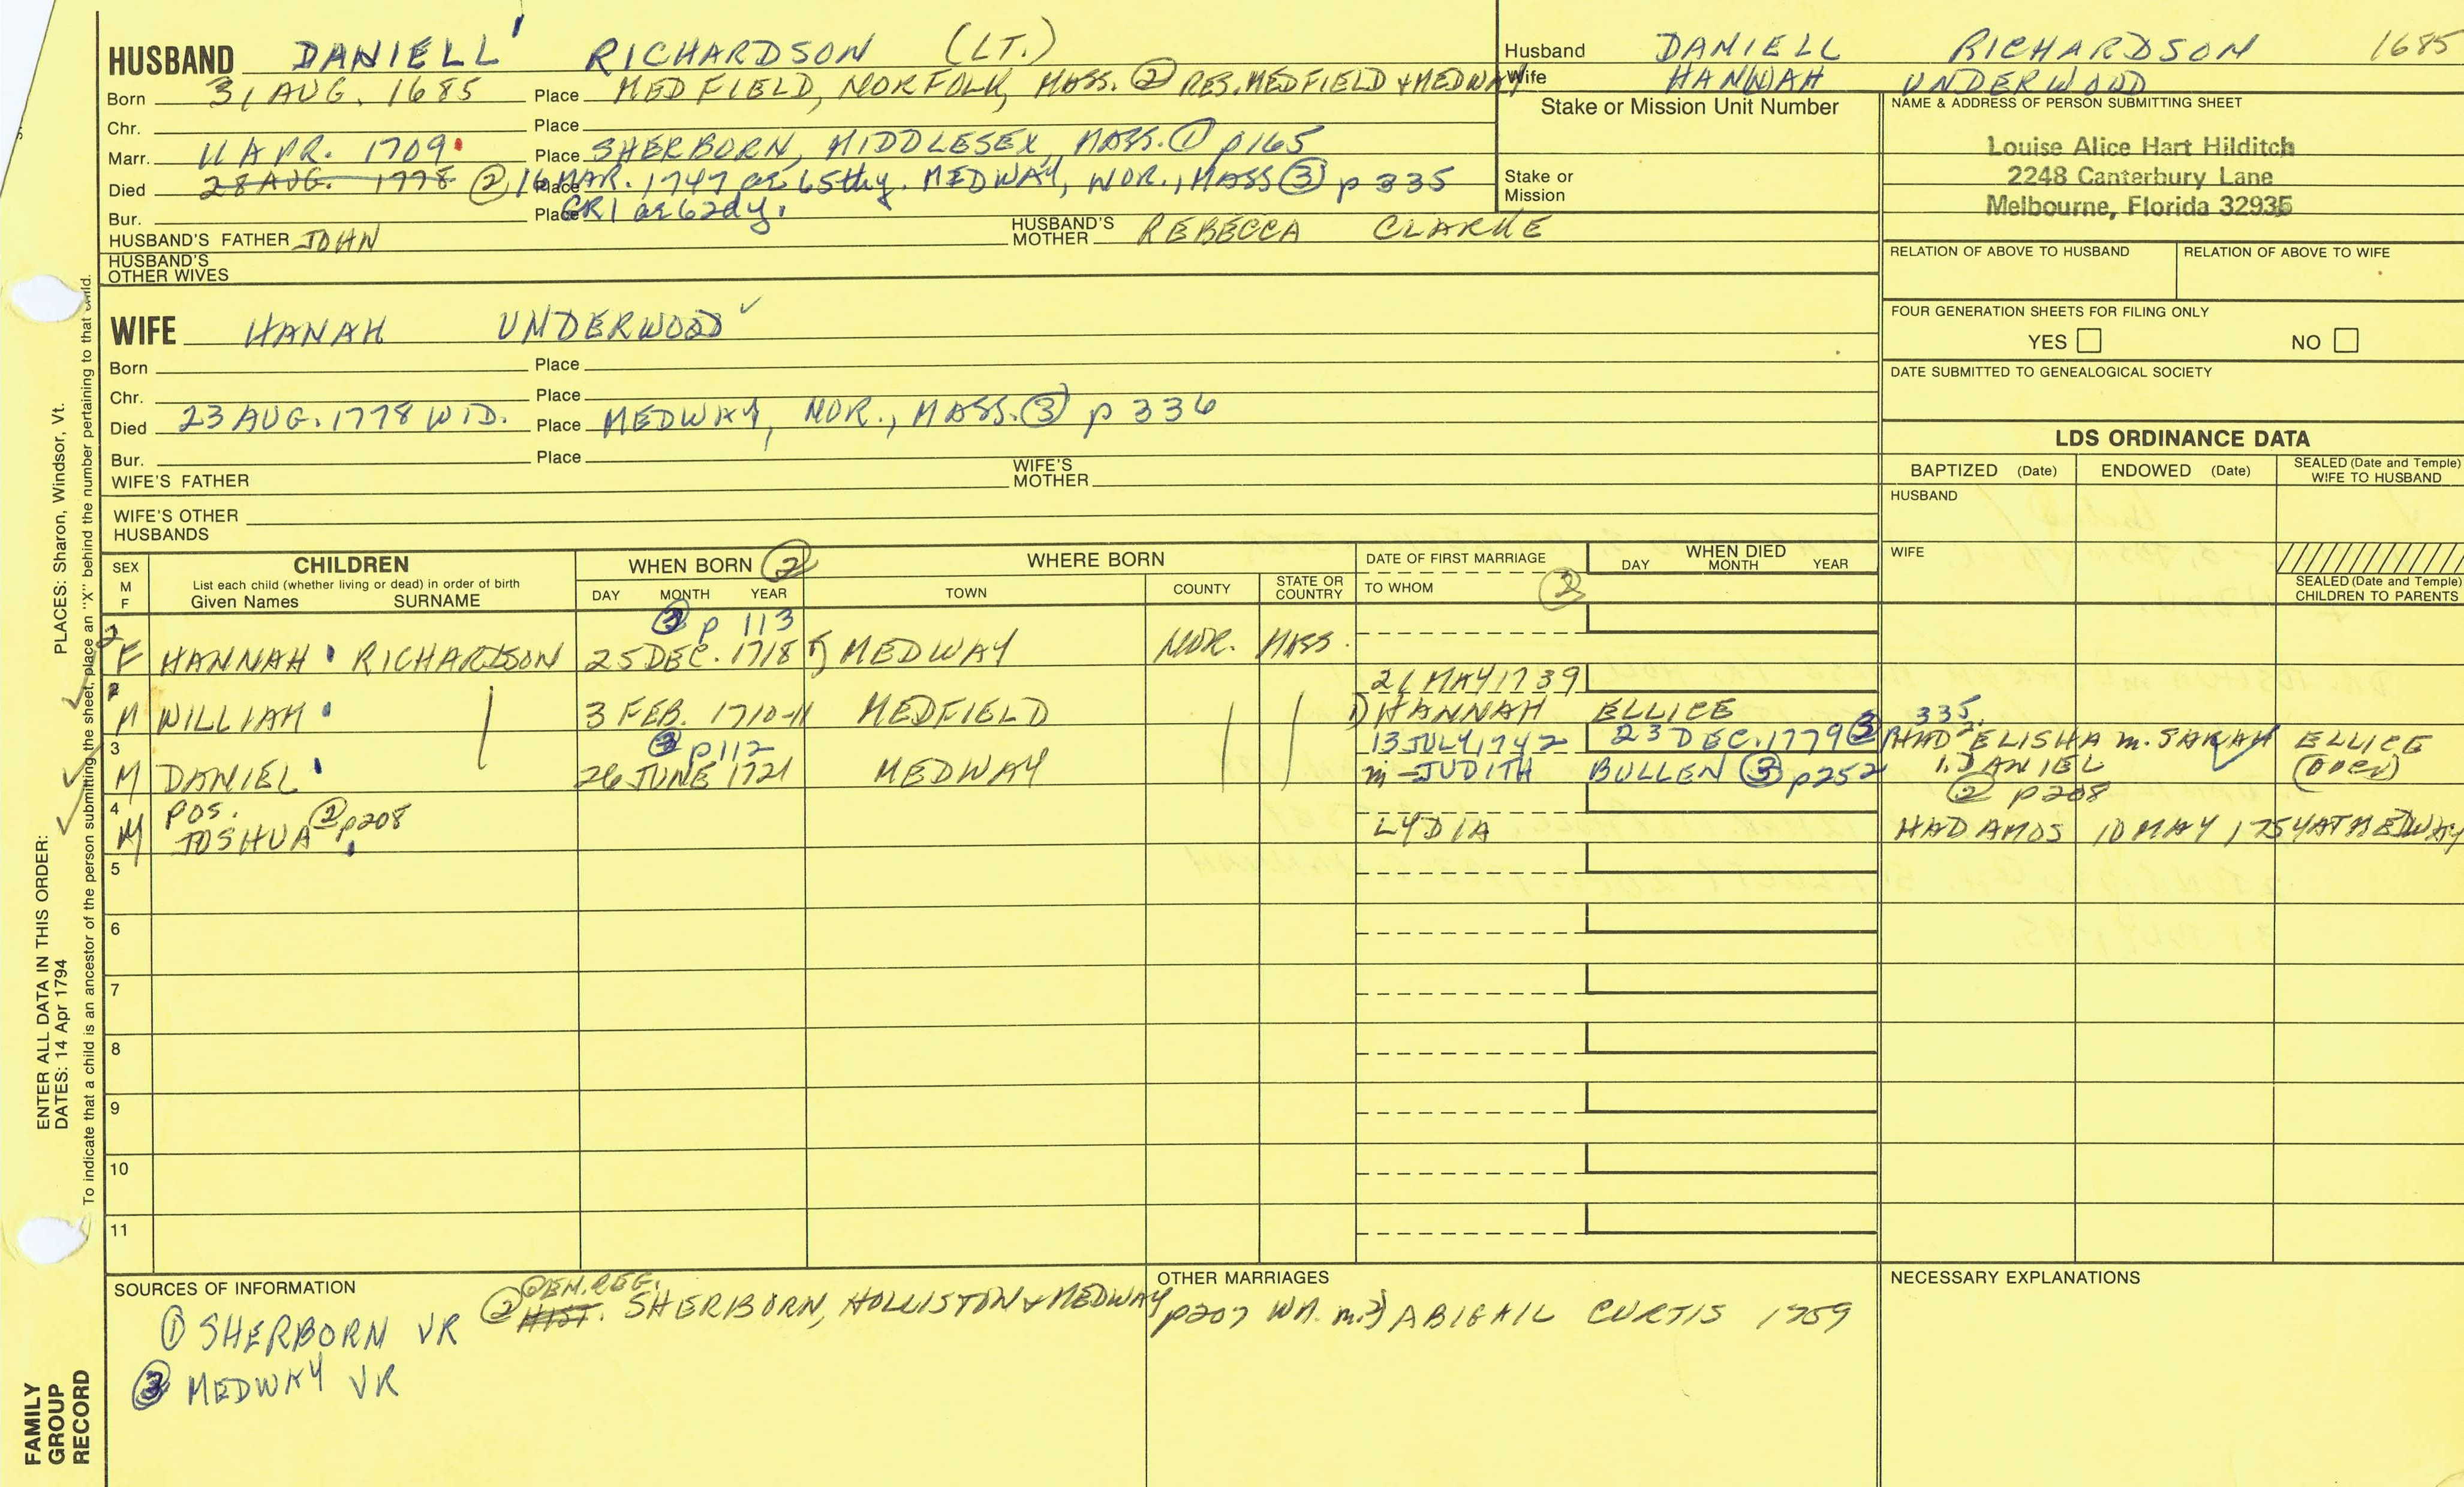 HUSBAND DANIELL RICHARDSON (LT.)
Born 31 AUG. 1685 Place MEDFIELD, NORFOLK, MASS. ② RES. MEDFIELD & MEDWAY
Chr. Place
Marr. 11 APR. 1709 Place SHERBORN, MIDDLESEX, MASS. ① p165
Died 28 AUG. 1778 ② 16 MAR. 1747 ae 65thy. MEDWAY, NOR., MASS ③ p 335
Place
Bur. Place GR1 ae 62dy.
HUSBAND'S FATHER JOHN HUSBAND'S MOTHER REBECCA CLARKE
HUSBAND'S OTHER WIVES
Husband DANIELL RICHARDSON 1685
Wife HANNAH UNDERWOOD
Stake or Mission Unit Number
Stake or Mission
NAME & ADDRESS OF PERSON SUBMITTING SHEET
Louise Alice Hart Hilditch
2248 Canterbury Lane
Melbourne, Florida 32935
RELATION OF ABOVE TO HUSBAND RELATION OF ABOVE TO WIFE
FOUR GENERATION SHEETS FOR FILING ONLY
YES NO
DATE SUBMITTED TO GENEALOGICAL SOCIETY
WIFE HANAH UNDERWOOD
Born Place
Chr. Place
Died 23 AUG. 1778 WID. Place MEDWAY, NOR., MASS. ③ p 336
Bur. Place
WIFE'S FATHER WIFE'S MOTHER
WIFE'S OTHER HUSBANDS
LDS ORDINANCE DATA
BAPTIZED (Date) ENDOWED (Date) SEALED (Date and Temple) WIFE TO HUSBAND
HUSBAND
WIFE
SEALED (Date and Temple) CHILDREN TO PARENTS
SEX M F
CHILDREN
List each child (whether living or dead) in order of birth
Given Names SURNAME
WHEN BORN ②
DAY MONTH YEAR
WHERE BORN
TOWN COUNTY STATE OR COUNTRY
DATE OF FIRST MARRIAGE
TO WHOM ②
WHEN DIED
DAY MONTH YEAR
③ p 113
2 F HANNAH RICHARDSON 25 DEC. 1718 MEDWAY NOR. MASS.
21 MAY 1739
M WILLIAM 3 FEB. 1710-11 MEDFIELD 1) HANNAH ELLICE
3 ③ p112 13 JULY 1742 23 DEC. 1779 ③ 335. HAD 2 ELISHA m. SARAH ELLICE
M DANIEL 26 JUNE 1721 MEDWAY m JUDITH BULLEN ③ p252 1. DANIEL (OVER)
② p208
4 POS.
M JOSHUA ② p208 LYDIA HAD AMOS 10 MAY 1754 AT MEDWAY
5
6
7
8
9
10
11
SOURCES OF INFORMATION
① SHERBORN VR ② HIST. GEN. REG. SHERBORN, HOLLISTON & MEDWAY
③ MEDWAY VR
OTHER MARRIAGES
p207 WM. m. 2) ABIGAIL CURTIS 1759
NECESSARY EXPLANATIONS
ENTER ALL DATA IN THIS ORDER:
DATES: 14 Apr 1794
PLACES: Sharon, Windsor, Vt.
To indicate that a child is an ancestor of the person submitting the sheet, place an "X" behind the number pertaining to that child.
FAMILY
GROUP
RECORD